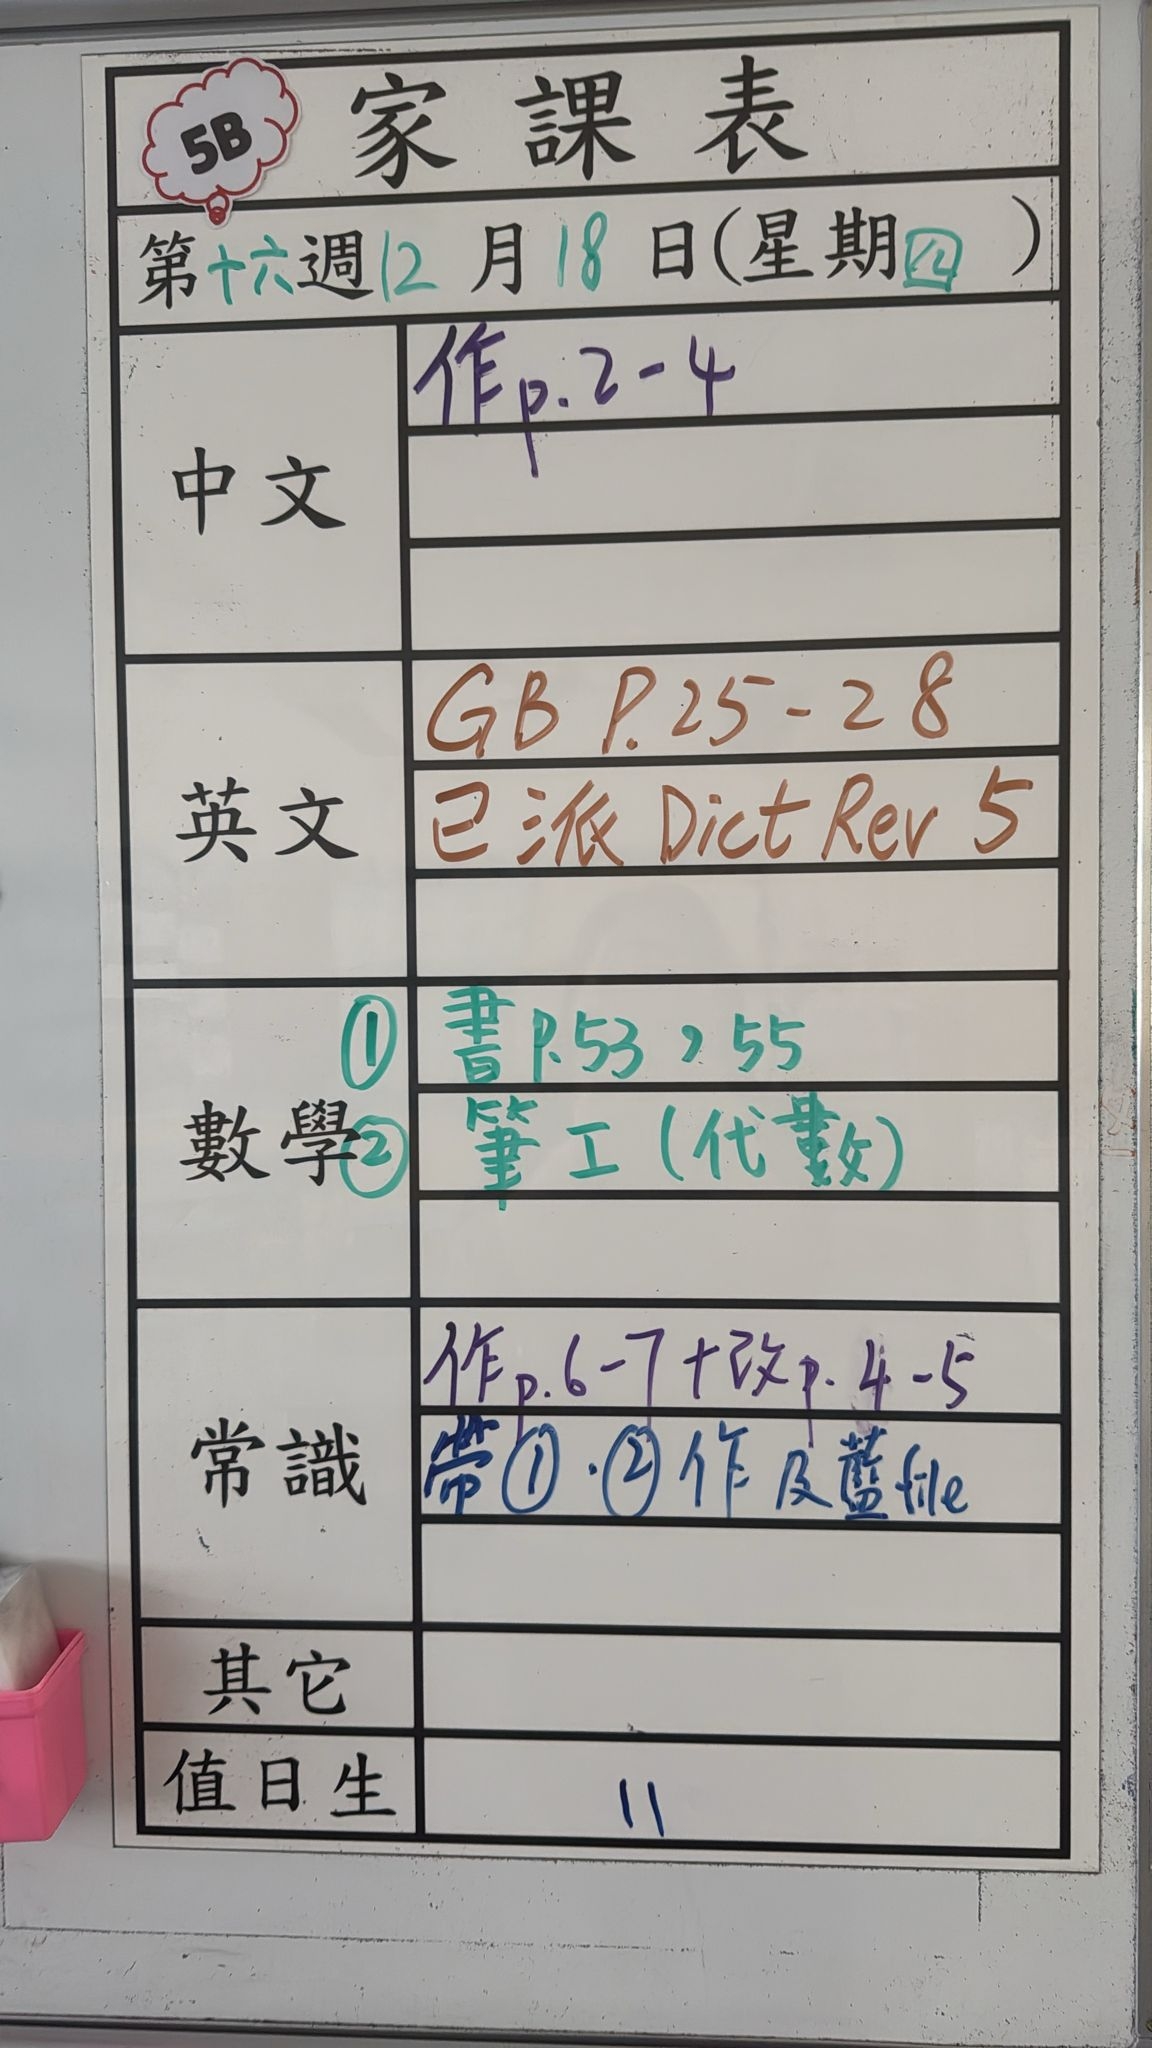 5B 家課表
第十六週12月18日(星期四)
中文
作p.2-4
英文
GB P.25-28
已派 Dict Rev 5
數學
① 書P.53,55
② 筆工(代數)
常識
作p.6-7+改p.4-5
帶①.②作及藍file
其它
值日生
11